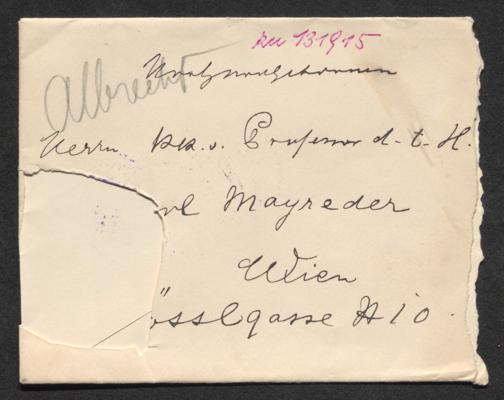 zu 131915
Albrecht
Hochwohlgeboren
Herrn k.k. o. Professor d. t. H.
rl Mayreder
Wien
össlgasse № 10.